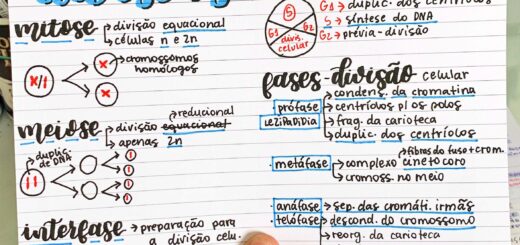 mitose
divisão equacional
células n e 2n
cromossomos
homólogos
meiose
reducional
divisão equacional
apenas 2n
duplic.
de DNA
interfase
preparação para
a divisão celu
G1
S
G2
divis.
celular
G1 → duplic. dos centríolos
S → síntese do DNA
G2 → prévia-divisão
fases-divisão celular
condens. da cromatina
prófase
centríolos p/ os polos
LeZiPaDiDia
frag. da carioteca
duplic. dos centríolos
fibras do fuso + crom.
metáfase
complexo cinetocoro
cromoss. no meio
anáfase
sep. das cromáti. irmãs
telófase
descond. do cromossomo
reorg. da carioteca